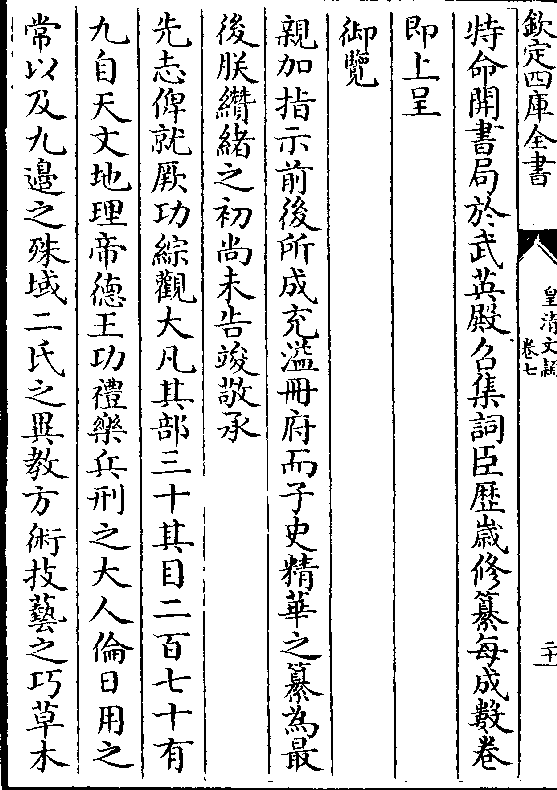 欽定四庫全書
皇清文頴
卷七
二十
特命開書局於武英殿召集詞臣歴嵗修纂每成數卷
即上呈
御覽
親加指示前後所成充溢冊府而子史精華之纂為最
後朕纘緒之初尚未告竣敬承
先志俾就厥功綜觀大凡其部三十其目二百七十有
九自天文地理帝德王功禮樂兵刑之大人倫日用之
常以及九邊之殊域二氏之異教方術技藝之巧草木